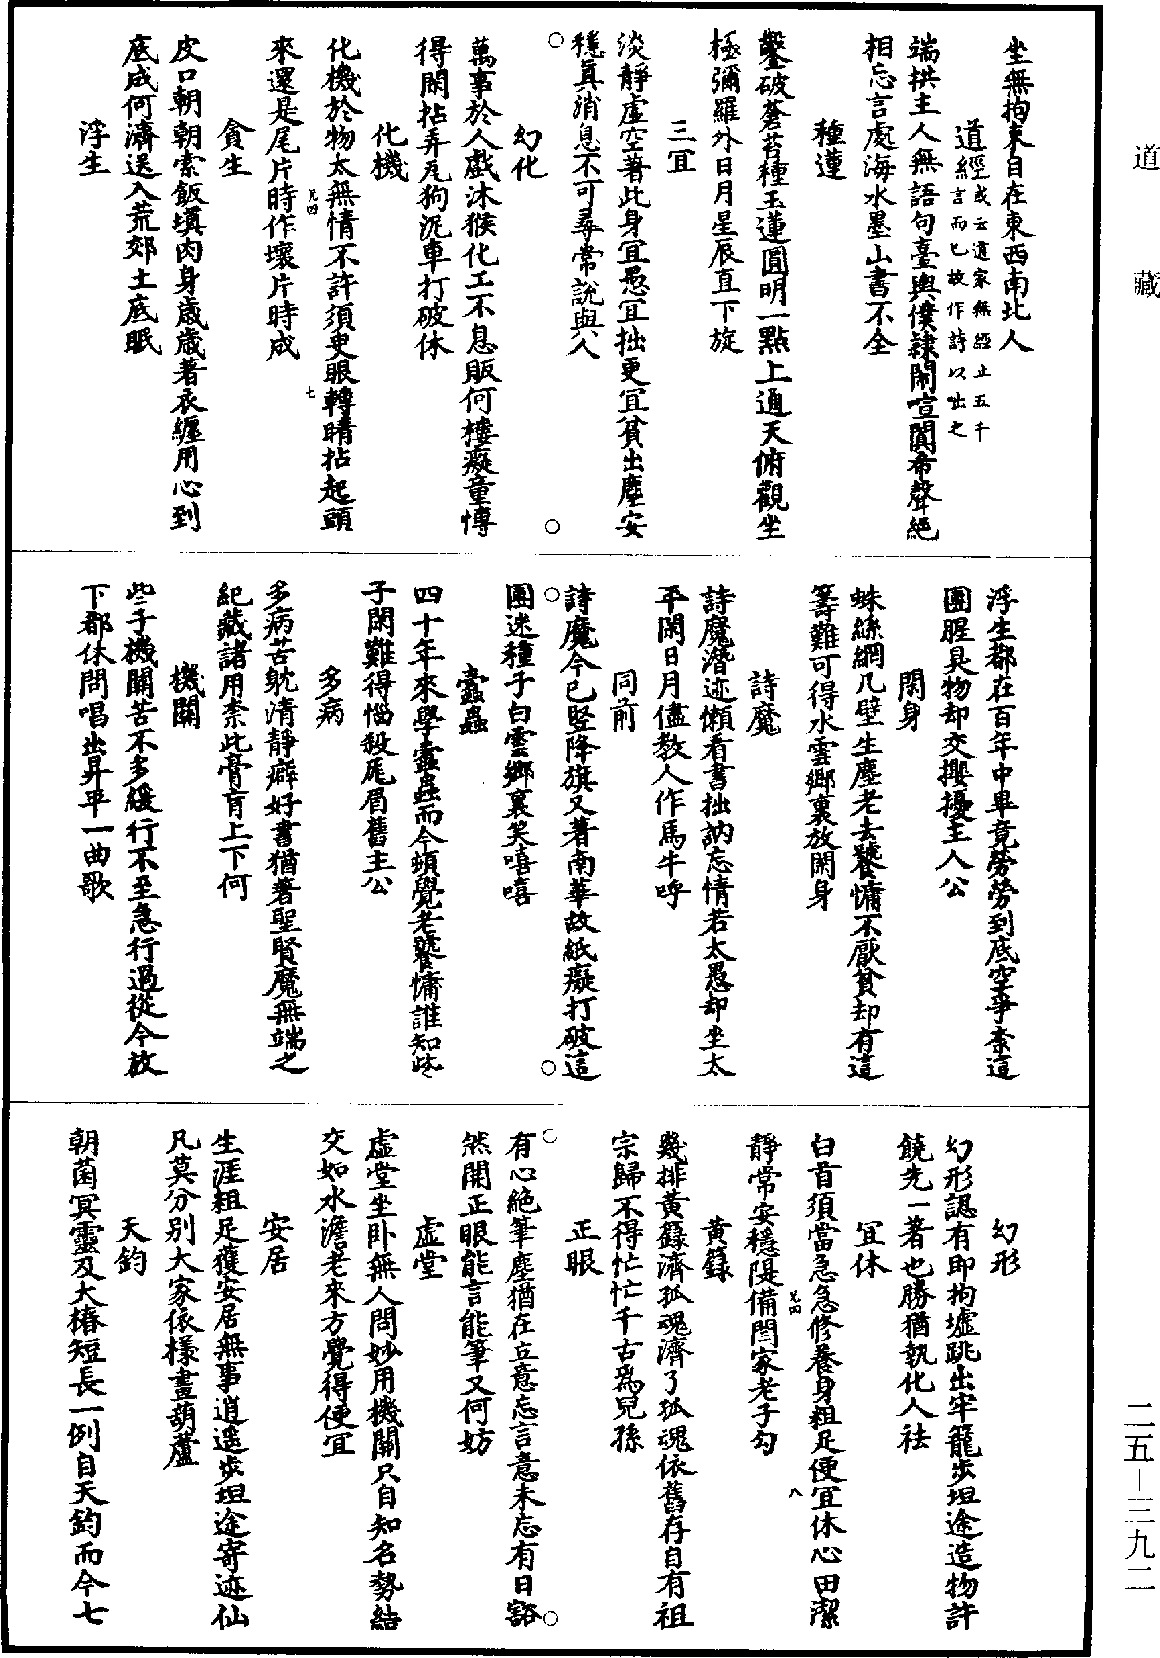 道藏
坐無拘束自在東西南北人
道經或云道家無經止五千言而已故作詩以咄之
端拱主人無語句臺輿僕隸鬧喧闐希聲絕
相忘言處海水墨山書不全
種蓮
鑿破蒼苔種玉蓮圓明一點上通天俯觀坐
極彌羅外日月星辰直下旋
三宜
淡靜虛空著此身宜愚宜拙更宜貧出塵安
穩真消息不可尋常說與人
幻化
萬事於人戲沐猴化工不息販何樓癡童慱
得閑拈弄瓦狗泥車打破休
化機
化機於物太無情不許須臾眼轉睛拈起頭
來還是尾片時作壞片時成
兄四
七
貪生
皮口朝朝索飯塡肉身歲歲著衣纏用心到
底成何濟送入荒郊土底眠
浮生
浮生都在百年中畢竟勞勞到底空爭柰這
團腥臭物却交擾擾主人公
閑身
蛛絲網几壁生塵老去饕慵不厭貧却有這
籌難可得水雲鄉裏放閑身
詩魔
詩魔潛迹懶看書拙訥忘情若太愚却坐太
平閑日月儘教人作馬牛呼
同前
詩魔今已竪降旗又著南華故紙癡打破這
團迷種子白雲鄉裏笑嘻嘻
蠹蟲
四十年來學蠹蟲而今頓覺老饕慵誰知些
子閑難得惱殺厖眉舊主公
多病
多病苦躭清靜癖好書猶著聖賢魔無端之
紀藏諸用柰此膏肓上下何
機關
些子機關苦不多緩行不至急行過從今放
下都休問唱出昇平一曲歌
幻形
幻形認有即拘墟跳出牢籠步坦途造物許
饒先一著也勝猶執化人祛
宜休
白首須當急急修養身粗足便宜休心田潔
靜常安穩隄備閻家老子勾
兄四
八
黃籙
幾排黃籙濟孤魂濟了孤魂依舊存自有祖
宗歸不得忙忙千古爲兒孫
正眼
有心絶筆塵猶在立意忘言意未忘有日豁
然開正眼能言能筆又何妨
虛堂
虛堂坐卧無人問妙用機關只自知名勢結
交如水澹老來方覺得便宜
安居
生涯粗足獲安居無事逍遥步坦途寄迹仙
凡莫分别大家依樣畫葫蘆
天鈞
朝菌冥靈及大椿短長一例自天鈞而今七
二五—三九二